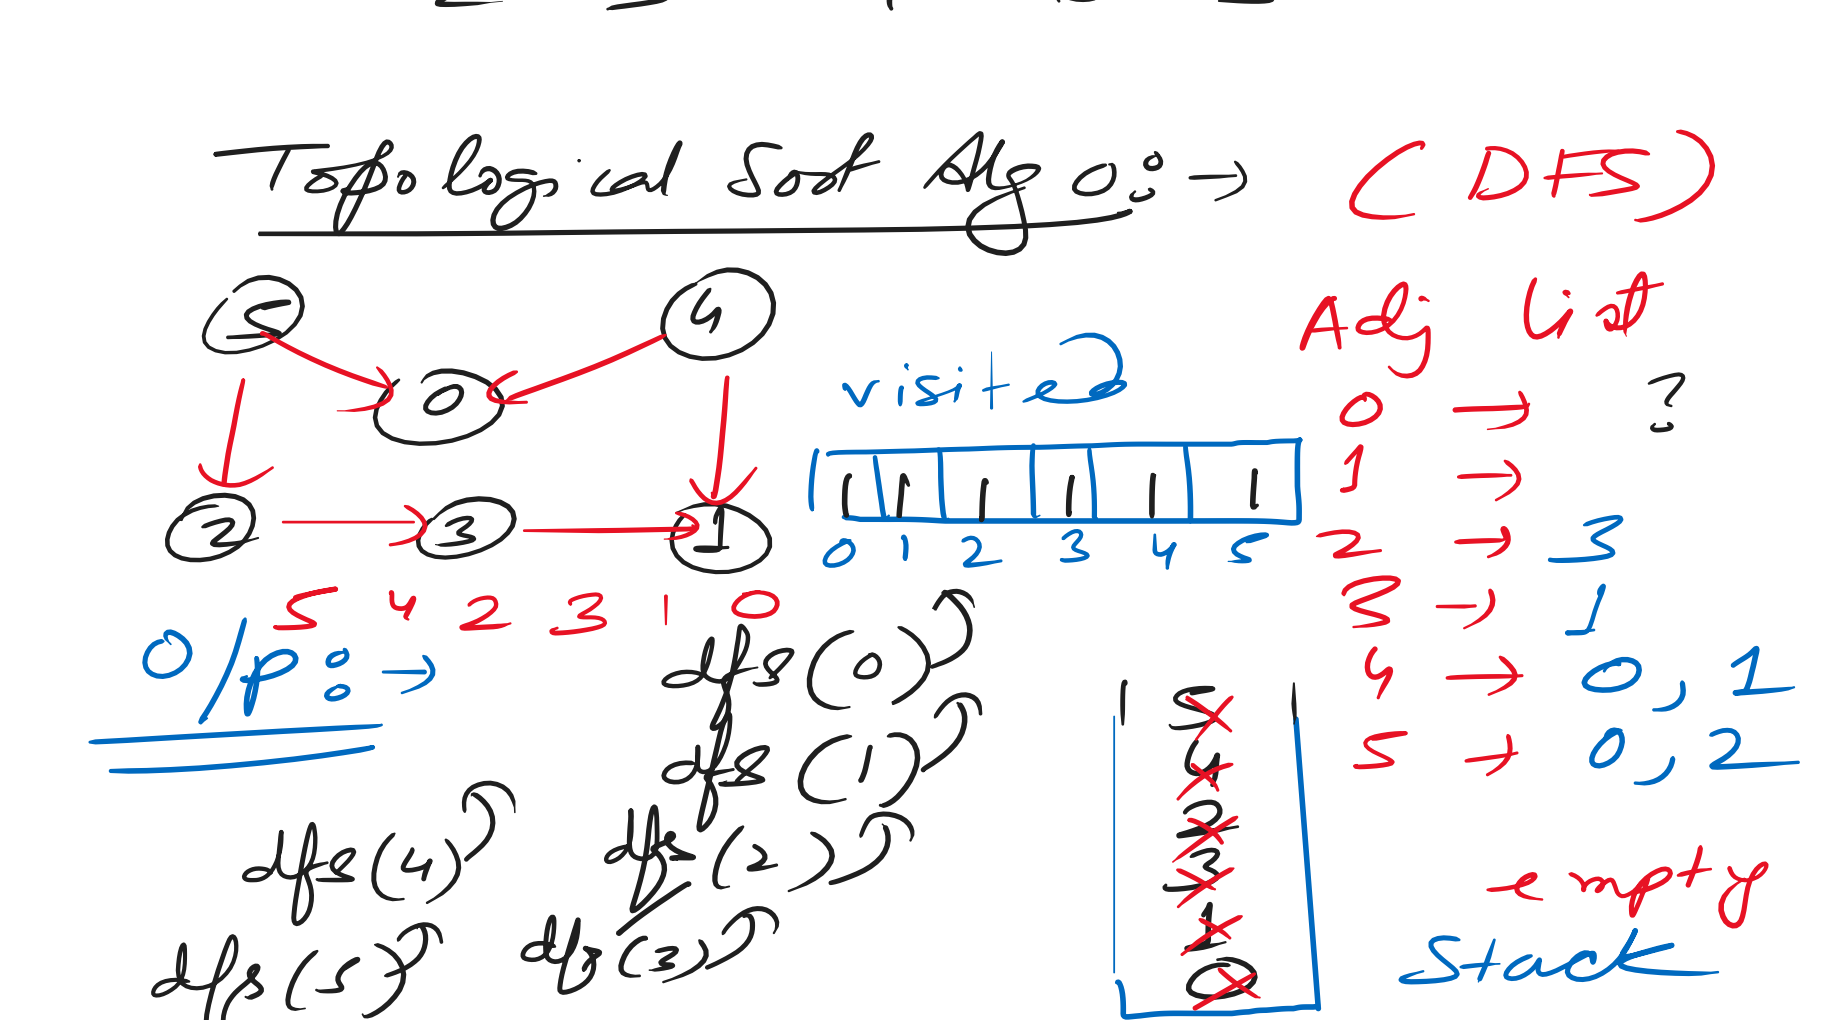 Topological Sort Algo:→ (DFS)
5 4
0
2 3 1
visited
1 1 1 1 1 1
0 1 2 3 4 5
Adj list
0 → ?
1 →
2 → 3
3 → 1
4 → 0, 1
5 → 0, 2
5 4 2 3 1 0
O/p:→
dfs(0)
dfs(1)
dfs(2)
dfs(3)
dfs(4)
dfs(5)
5
4
2
3
1
0
empty
Stack